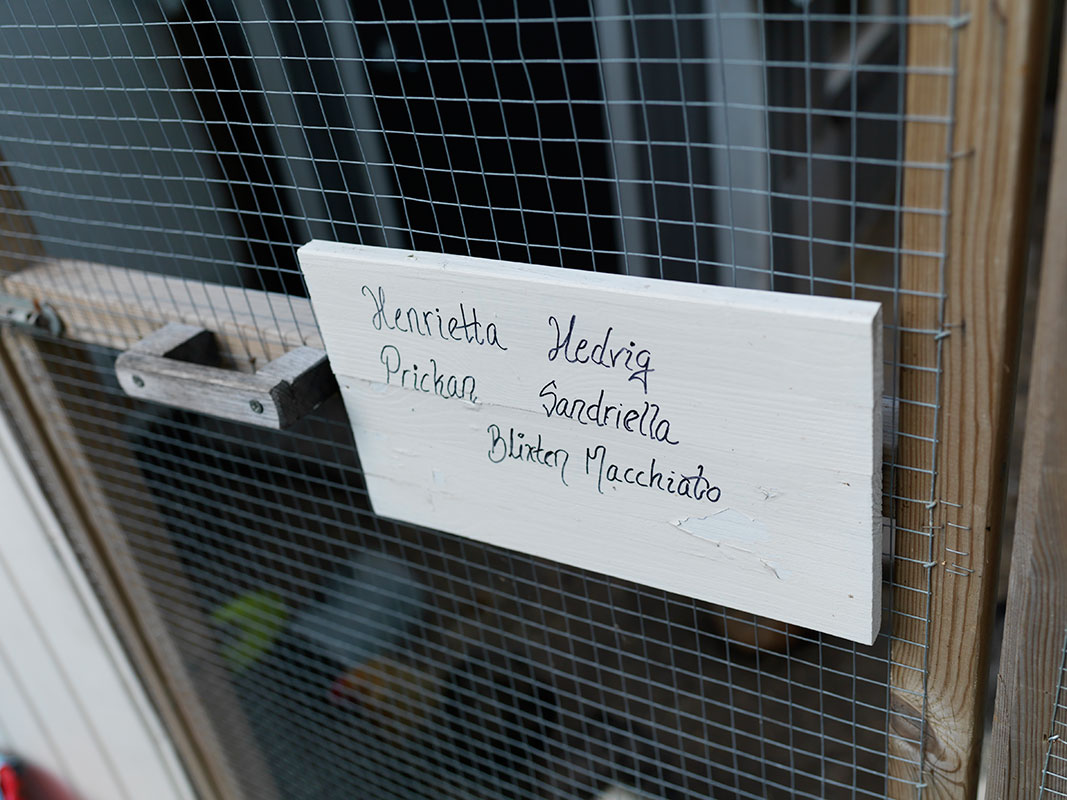 Henrietta Hedvig
Prickan Sandriella
Blixten Macchiato